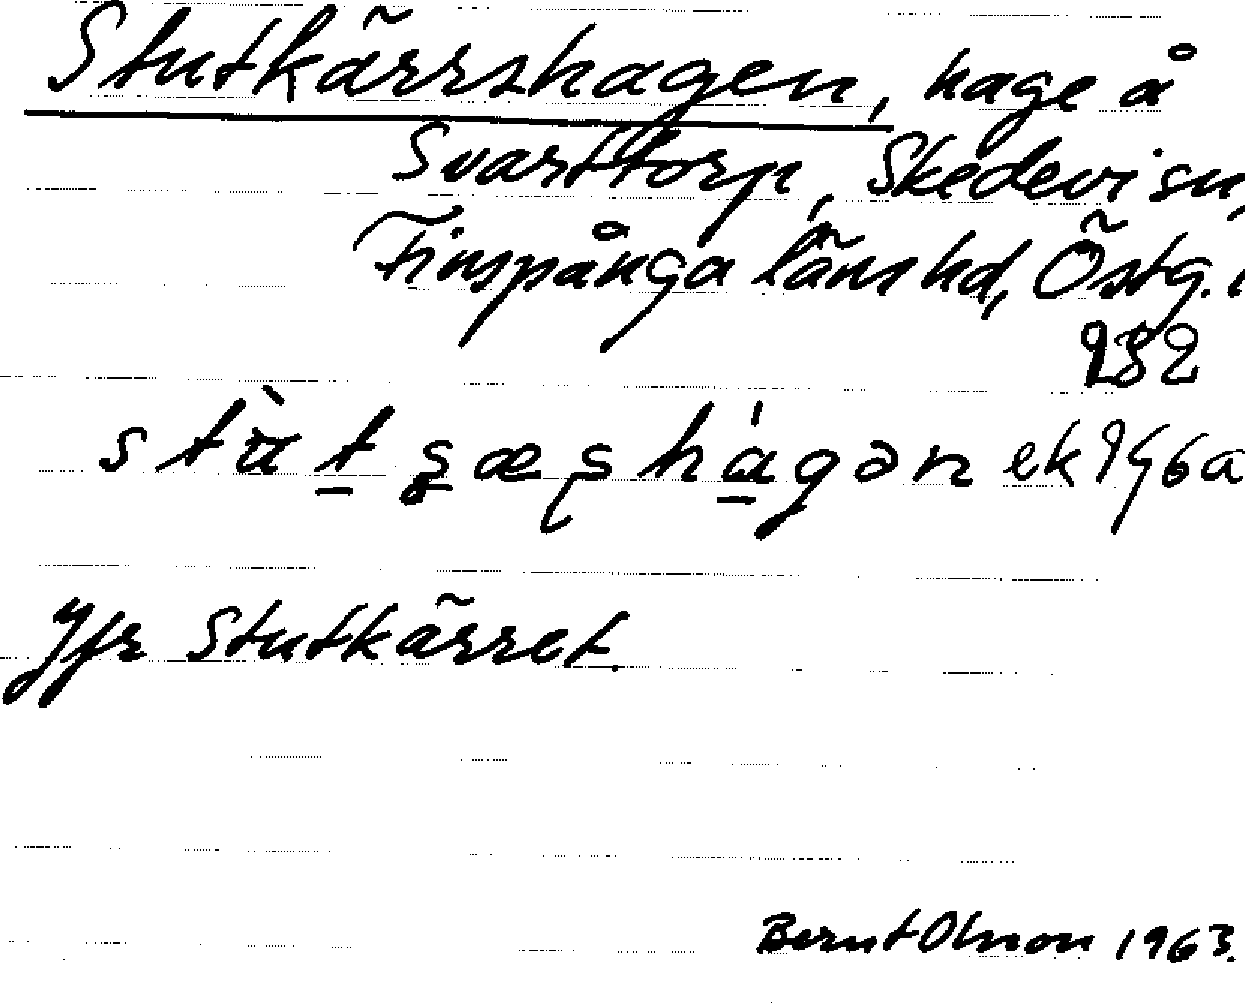 Stutkärrshagen, hage å
Svarttorp, Skedevi sn,
Finspånga läns hd, Östg. l
282
ek 1/6a
Jfr Stutkärret.
Bernt Olsson 1963.